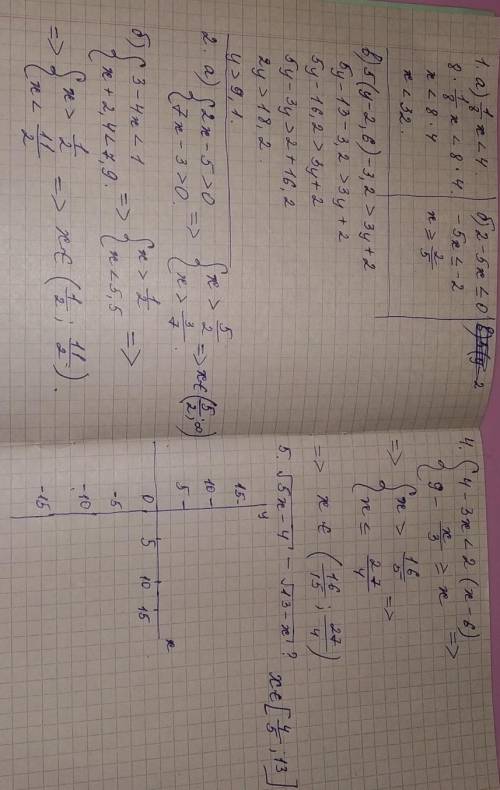 1. а) 1/8 x < 4
8 · 1/8 x < 8 · 4.
x < 8 · 4
x < 32.
б) 2 - 5x ≤ 0
-5x ≤ -2
x ≥ 2/5
в) 5(y - 2,6) - 3,2 > 3y + 2
5y - 13 - 3,2 > 3y + 2
5y - 16,2 > 3y + 2
5y - 3y > 2 + 16,2
2y > 18,2.
y > 9,1.
2. а) { 2x - 5 > 0
7x - 3 > 0. => { x > 5/2
x > 3/7. => x ∈ (5/2; ∞)
б) { 3 - 4x < 1
x + 2,4 < 7,9. => { x > 1/2
x < 5,5 =>
=> { x > 1/2
x < 11/2 => x ∈ (1/2; 11/2).
4. { 4 - 3x < 2(x - 6)
9 - x/3 ≥ x =>
=> { x > 16/5
x ≤ 27/4 =>
=> x ∈ (16/15; 27/4)
5. √5x - 4 - √13 - x ? x ∈ [4/5; 13]
y
15
10
5
0
-5
-10
-15
5 10 15 x